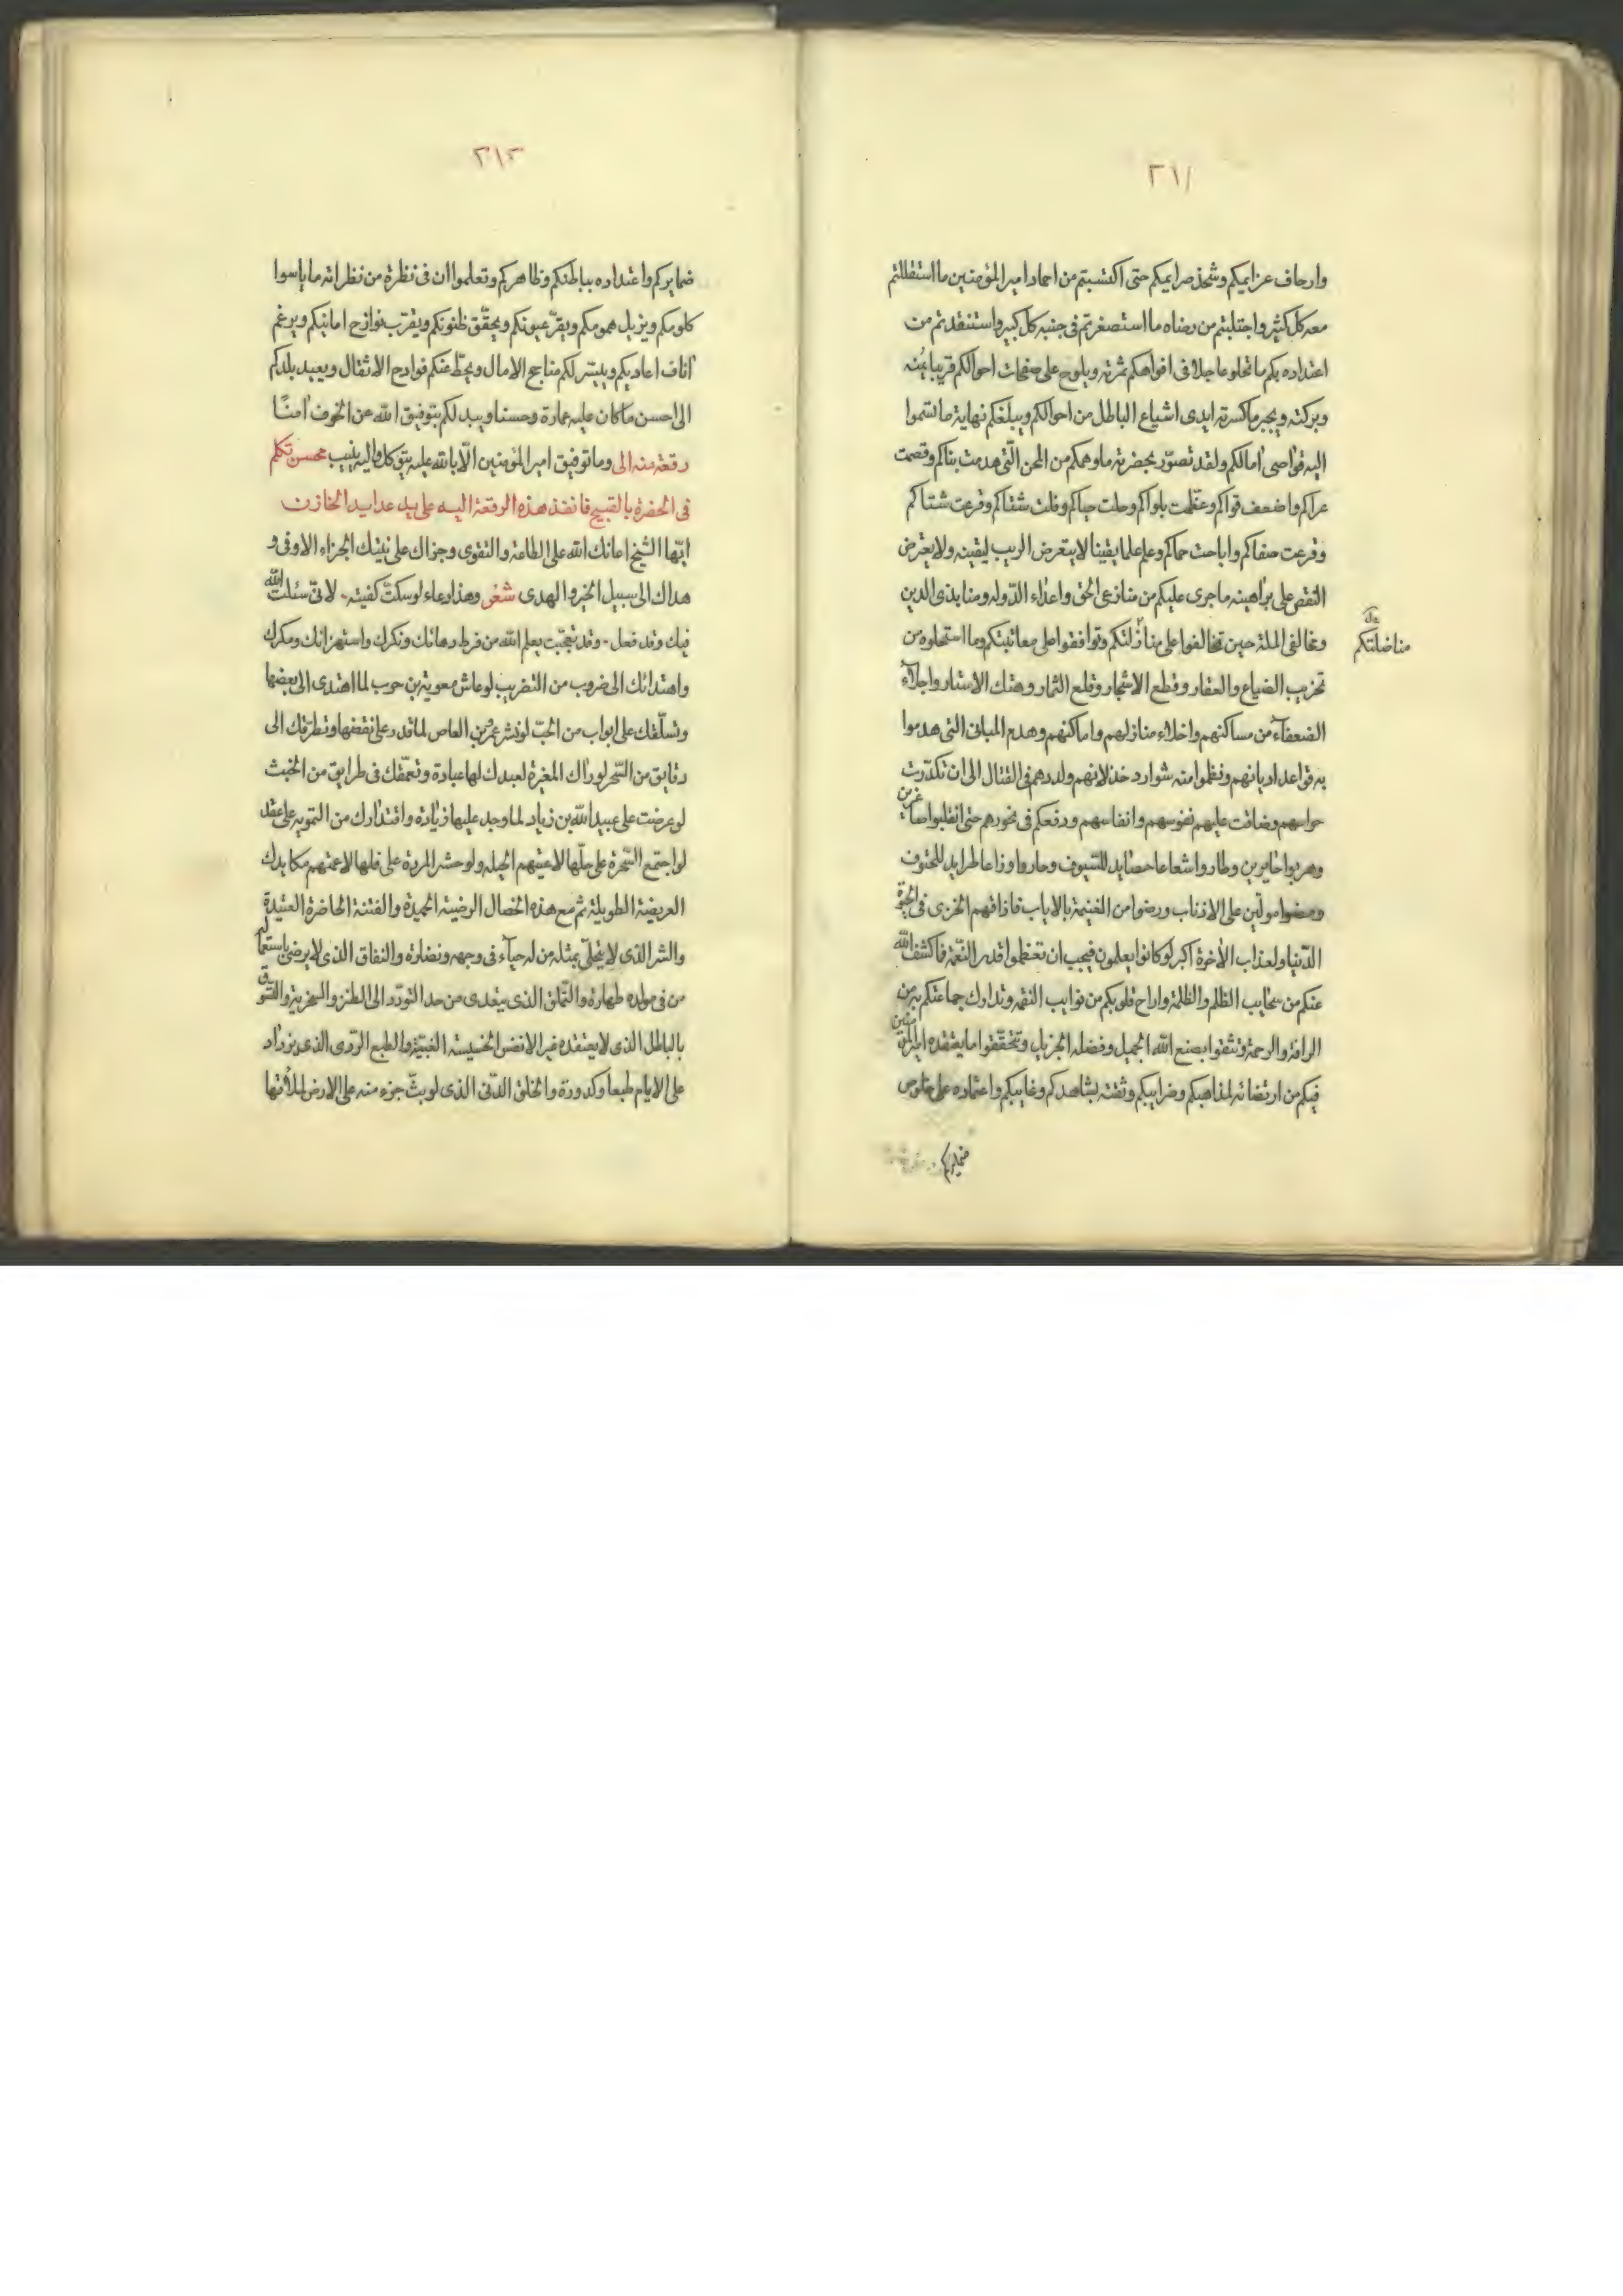 ٢١١
وارهاف عزايمكم وشحذ صرايمكم حتى اكتسبتم من احماد اميرالمؤمنين ما استقللتم
معه كل كثير واجتلبتم من رضاه ما استصغرتم فى جنبه كل كبير واستنقدتم من
اعتداده بكم ما تحلو عاجلا فى افواهكم ثمرته ويلوح على صفحات احوالكم قريبا يمنه
وبركته ويجبر ما كسرته ايدى اشياع الباطل من احوالكم ويبلغكم نهاية ما تسموا
اليه قواصى امالكم ولقد تصور بحضرته ما وهمكم من المحن التى هدمت بناكم وقصمت
عراكم واضعف قواكم وعظمت بلواكم وحلت حباكم وفلت شفاكم وفرعت شتاكم
وقرعت صفاكم واباحت حماكم وعلم علما يقينا لا يتعرض الريب ليقينه ولا يعترض
النقص على براهينه ما جرى عليكم من منازعى الحق واعداء الدوله ومنابذى الدين
ومخالفى الملة حين تحالفوا على منازلتكم وتوافقوا على معاتبتكم وما استحلوه من
مناضلتكم
تخريب الضياع والعقار وقطع الاشجار وقلع الثمار وهتك الاستار واجلاء
الضعفاء من مساكنهم واخلاء منازلهم واماكنهم وهدم المبانى التى هدموا
به قواعد اديانهم ونظموا منه شوارد خذلانهم ولددهم فى القتال الى ان تكدرت
حواسهم وضاقت عليهم نفوسهم وانفاسهم ودفعكم فى نحورهم حتى انقلبوا صاغرين
وهربوا خايرين وطاروا شعاعا حصايد للسيوف وحاروا وزاعا طرايد للحتوف
ومضوا مولين على الاذناب ورضوا من الغنيمة بالاياب فاذاقهم الخزى فى الحيوة
الدنيا ولعذاب الاخرة اكبر لو كانوا يعلمون فيجب ان تعظموا قدر النعمة فاكشف الله
عنكم من سحايب الظلم والظلمة واراح قلوبكم من نوايب النقمه وتدارك جماعتكم به من
الرافة والرحمة وتثقوا بصنع الله الجميل وفضله الجزيل وتتحققوا ما يعتقده اميرالمؤمنين
فيكم من ارتضائه لمذاهبكم وضرايبكم وثقته بشاهدكم وغايبكم واعتماده على خلوص
ضمايركم
٢١٣
ضمايركم واعتداده بباطنكم وظاهركم وتعلموا ان فى نظرة من نظراته ما ياسوا
كلومكم ويزيل همومكم ويقر عيونكم ويحقق ظنونكم ويقرب نوازح امانيكم ويرغم
اناف اعاديكم وييسر لكم مناجح الامال ويحط عنكم فوادح الاثقال ويعيد بلدكم
الى احسن ما كان عليه عمارة وحسنا ويبدلكم بتوفيق الله عن الخوف امنا
وما توفيق اميرالمؤمنين الا بالله عليه يتوكل واليه ينيب رقعة منه الى محسن تكلم
فى الحضرة بالقبيح فانفذ هذه الرقعة اليه على يد عدايد الخازن
ايها الشيخ اعانك الله على الطاعة والتقوى وجزاك على نيتك الجزاء الاوفى و
هداك الى سبيل الخير والهدى شعر وهذا دعاء لو سكتّ كفيته - لانى سئلت الله
فيك وقد فعل - وقد تعجبت يعلم الله من فرط دهائك ونكرك واستهزائك ومكرك
واهتدائك الى ضروب من التضريب لو عاش معوية بن حرب لما اهتدى الى بعضها
وتسلقك على ابواب من الخبّ لو نشر عمرو بن العاص لما قدر على نقضها وتطرقك الى
رقايق من السحر لو راك المغيرة لعبدك لها عبادة وتعمقك فى طرايق من الخبث
لو عرضت على عبيد الله بن زياد لما وجد عليها زيادة واقتدارك من التمويه على عقد
لو اجتمع السحرة على حلها لاعيتهم الحيله ولو حشر المردة على فلها لاعمتهم مكايدك
العريضة الطويلة ثم مع هذه الخصال الرضية الحميدة والفتنة الحاضرة العتيدة
والشر الذى لا يتحلى بمثله من له حياء فى وجهه ونضارة والنفاق الذى لا يرضى باستعمال
من فى مولده طهارة والتملق الذى يتعدى من حد التودد الى الطنز والسخرية والتسوق
بالباطل الذى لا يعتقده غير الانفس الخسيسة الغبية والطبع الردى الذى يزداد
على الايام طبعا وكدورة والخلق الدنى الذى لو بث جزء منه على الارض لملأتها